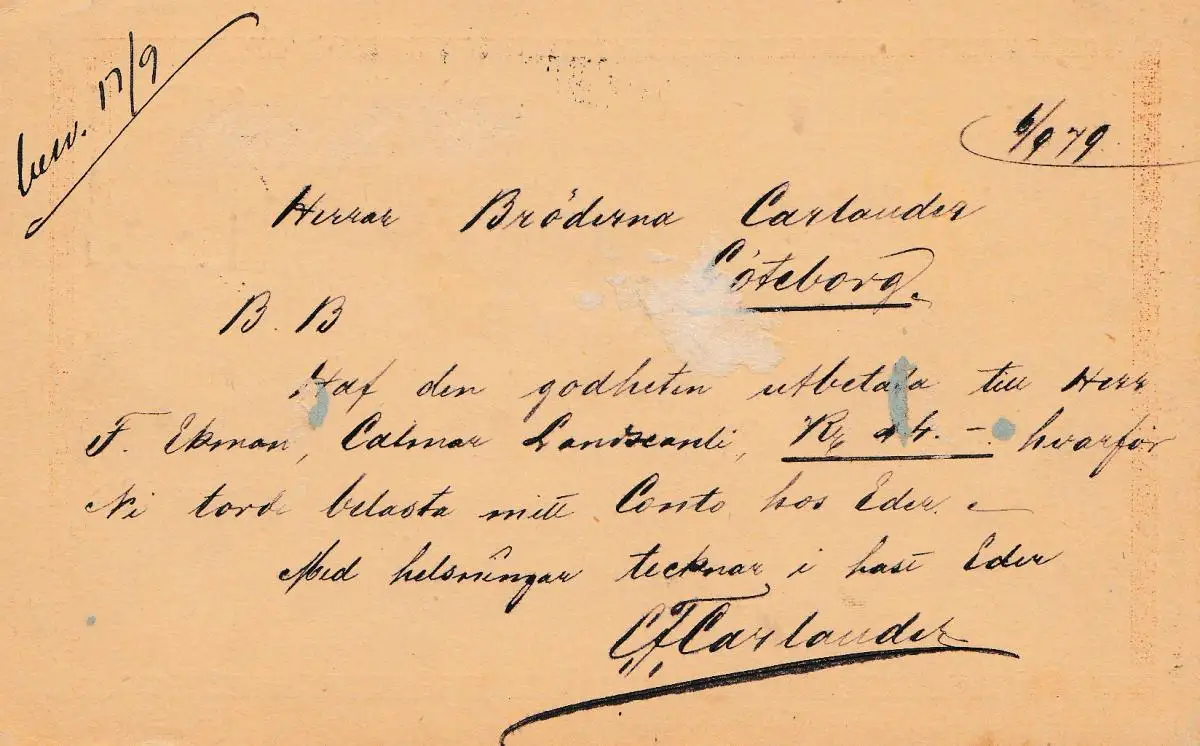 besv. 17/9
6/9 79
Herrar Bröderna Carlander
Göteborg.
B. B
Haf den godheten utbetala till Herr
F. Ekman, Calmar Landscanli, Kr 24. – hvarför
Ni torde belasta mitt Conto hos Eder. –
Med helsningar tecknar i hast Eder
C.F. Carlander